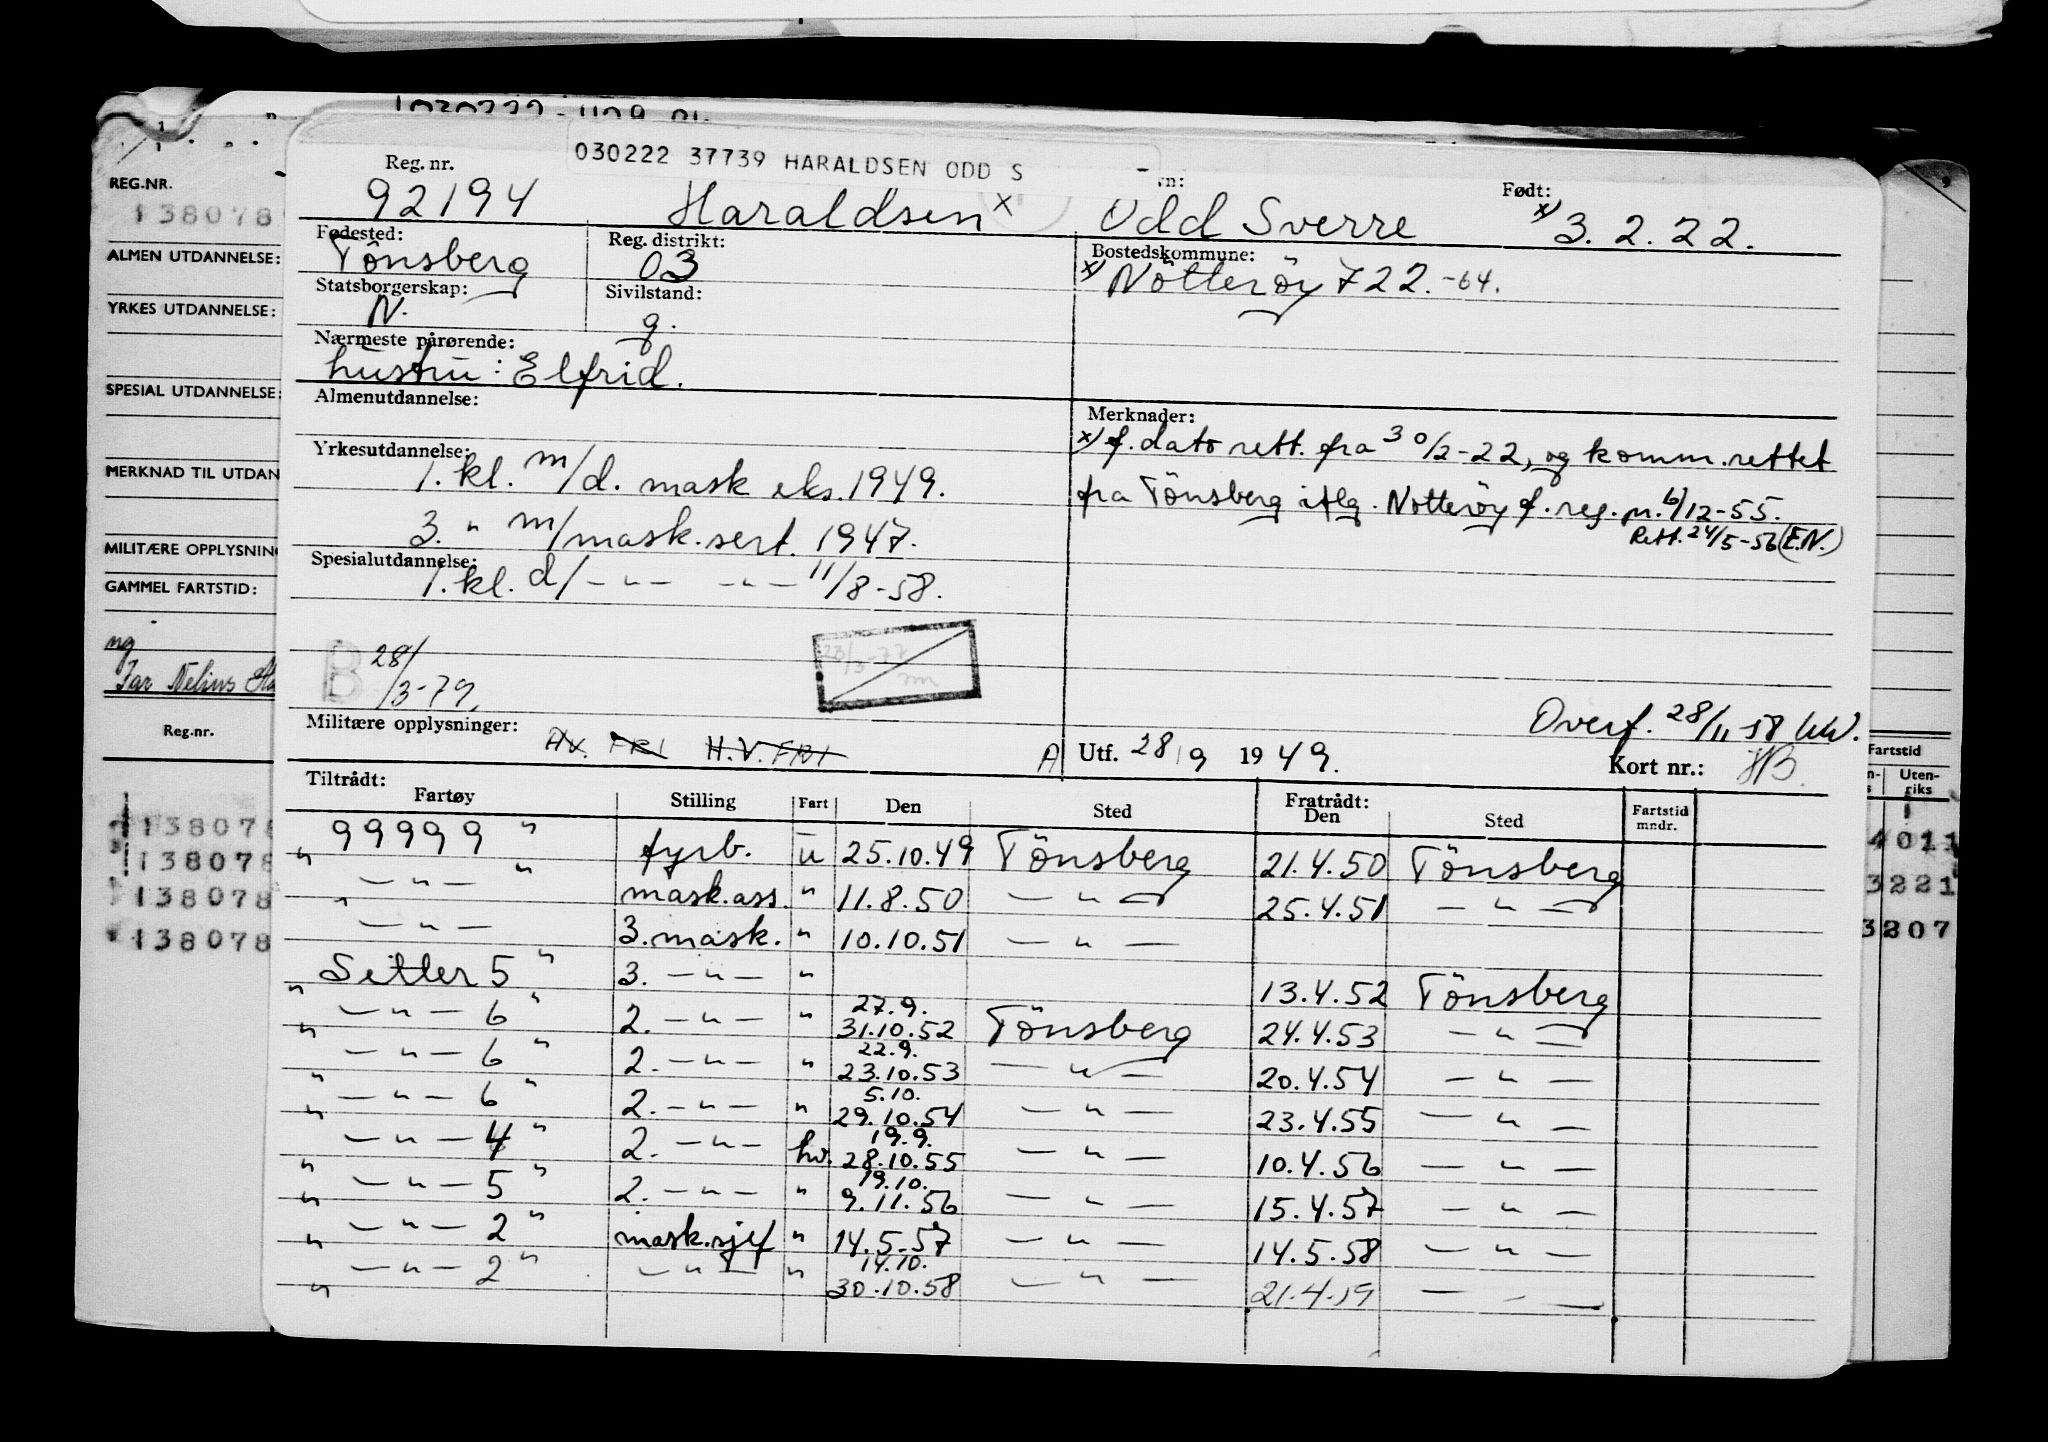 030222 37739 HARALDSEN ODD S
Reg. nr.
92194
Haraldsen x
Odd Sverre
Født:
x) 3. 2. 22.
Fødested:
Tönsberg
Reg. distrikt:
03
Bostedskommune:
x) Nötteröy 722. -64.
Statsborgerskap:
N.
Sivilstand:
g.
Nærmeste pårørende:
hustru: Elfrid.
Almenutdannelse:
Yrkesutdannelse:
1. kl. m/d. mask eks. 1949.
3. " m/mask. sert. 1947.
Spesialutdannelse:
1. kl. d/ — " — — " — 11/8-58.
Merknader:
x) f. dato rett. fra 30/2-22, og komm. rettet
fra Tönsberg iflg. Nötteröy f. reg. pr. 6/12-55.
Rett. 24/5-56 (E.N.)
B 28/3-79.
23/3-77
Overf. 28/11 58
Militære opplysninger:
H.V. FRI H.V. FRI
A Utf. 28/9 1949.
Kort nr.:
Tiltrådt:
Fartøy Stilling Fart Den Sted Fratrådt: Den Sted Fartstid mndr.
99999 " fyrb. u 25.10.49 Tönsberg 21.4.50 Tönsberg
" — " — " mask.ass. " 11.8.50 — " — 25.4.51 — " —
— " — 3. mask. " 10.10.51 — " —
Setter 5 " 3. — " — " 13.4.52 Tönsberg
" — " — 6 " 2. — " — " 27.9. 31.10.52 Tönsberg 24.4.53 — " —
" — " — 6 " 2. — " — " 22.9. 23.10.53 — " — 20.4.54 — " —
" — " — 6 " 2. — " — " 5.10. 29.10.54 — " — 23.4.55 — " —
" — " — 4 " 2. — " — hv. 19.9. 28.10.55 — " — 10.4.56 — " —
" — " — 5 " 2. — " — " 19.10. 9.11.56 — " — 15.4.57 — " —
" — " — 2 " mask.sjef " 14.5.57 — " — 14.5.58 — " —
" — " — 2 " — " — " 14.10. 30.10.58 — " — 21.4.59 — " —
REG.NR.
138078
ALMEN UTDANNELSE:
YRKES UTDANNELSE:
SPESIAL UTDANNELSE:
MERKNAD TIL UTDAN
MILITÆRE OPPLYSNIN
GAMMEL FARTSTID:
ng
Nelius
Reg.nr.
138078
138078
138078
138078
Fartstid
Uten-
riks
4011
3221
3207